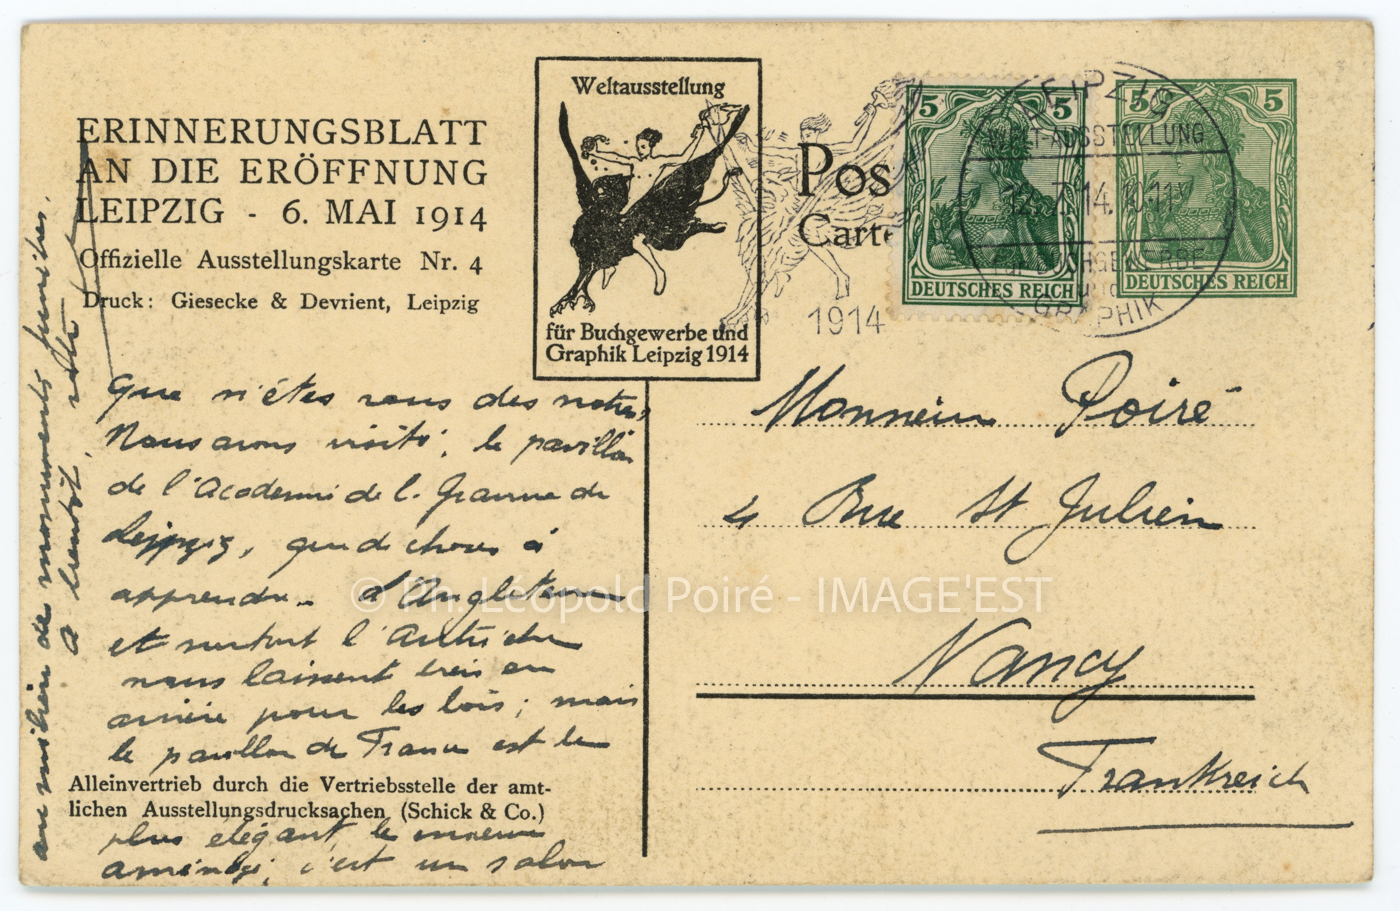 ERINNERUNGSBLATT
AN DIE ERÖFFNUNG
LEIPZIG - 6. MAI 1914
Offizielle Ausstellungskarte Nr. 4
Druck: Giesecke & Devrient, Leipzig
Weltausstellung
für Buchgewerbe und
Graphik Leipzig 1914
Pos
Carte
1914
5 5
DEUTSCHES REICH
5 5
DEUTSCHES REICH
LEIPZIG
WELT-AUSSTELLUNG
12.7.14.10-11V
FÜR BUCHGEWERBE
GRAPHIK
Que n'êtes vous des notres,
Nous avons visité; le pavillon
de l'Academie de l. Gravure de
Leipzig, que de choses à
apprendre. L'Angleterre
et surtout l'Autriche
nous laissent très en
arrière pour les bois; mais
le pavillon de France est le
plus élégant, le mieux
aménagé, c'est un salon
au milieu de monuments funèbres.
A bientôt, votre
Alleinvertrieb durch die Vertriebsstelle der amt-
lichen Ausstellungsdrucksachen (Schick & Co.)
Monsieur Poiré
4 Rue St Julien
Nancy
Frankreich
© Ph. Léopold Poiré - IMAGE'EST